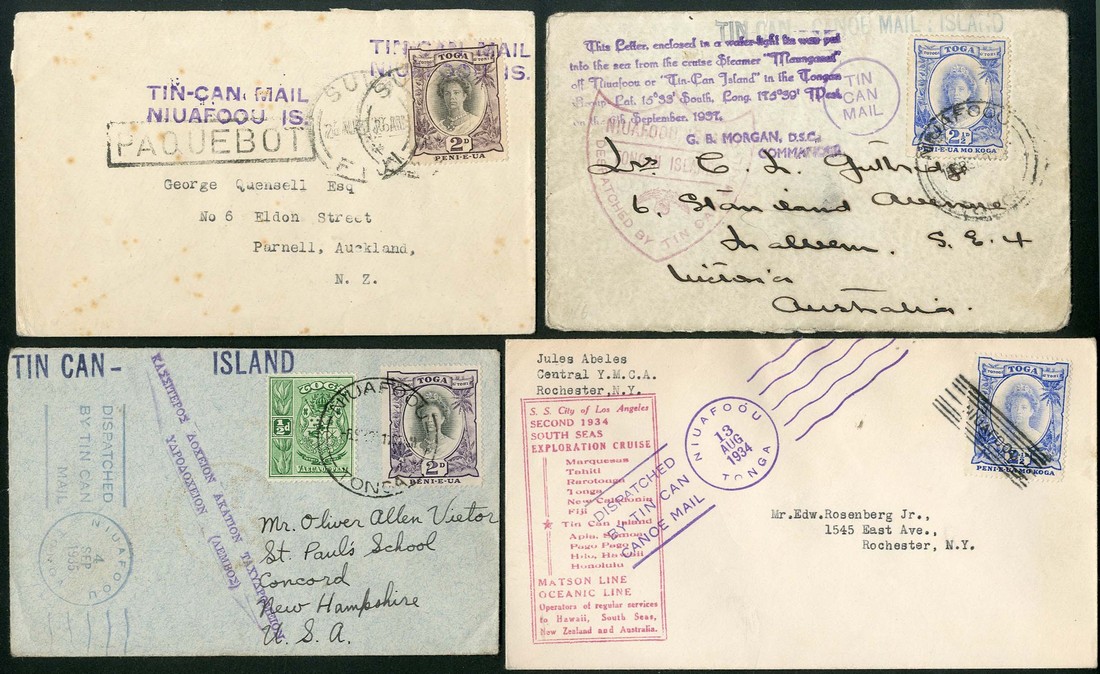 TIN-CAN MAIL
NIUAFOOU IS.
TIN-CAN MAIL
NIUAFOOU IS.
PAQUEBOT
SUVA
FIJI
TOGA
2D
PENI-E-UA
George Quensell Esq
No 6 Eldon Street
Parnell, Auckland,
N. Z.
TIN CAN - CANOE MAIL ISLAND
This Letter, enclosed in a water-tight tin was put
into the sea from the cruise Steamer "Maunganui"
off Niuafoou or "Tin-Can Island" in the Tongan
Group Lat. 15°33' South, Long. 175°39' West
on the September, 1937.
G. B. MORGAN, D.S.C.
COMMANDER
TIN
CAN
MAIL
NIUAFOOU
TONGAN ISLANDS
DESPATCHED BY TIN CAN
TOGA
2½D
PENI-E-UA MO KOGA
NIUAFOOU
C.
6, Staniland Avenue
Malvern. S.E.4
Victoria
Australia.
TIN CAN - ISLAND
DISPATCHED
BY TIN CAN
MAIL
NIUAFOOU
4
SEP
1935
TONGA
ΚΑΣΣΙΤΕΡΟΣ ΔΟΧΕΙΟΝ ΑΚΑΤΙΟΝ ΤΑΧΥΔΡΟΜΕΙΟΝ
ΥΔΡΟΔΟΧΕΙΟΝ (ΛΕΜΒΟΣ)
TOGA
½D
TOGA
2D
PENI-E-UA
NIUAFOOU
TONGA
Mr. Oliver Allen Vietor
St. Paul's School
Concord
New Hampshire
U. S. A.
Jules Abeles
Central Y.M.C.A.
Rochester, N.Y.
S. S. City of Los Angeles
SECOND 1934
SOUTH SEAS
EXPLORATION CRUISE
Marquesas
Tahiti
Rarotonga
Tonga
New Caledonia
Fiji
Tin Can Island
Apia, Samoa
Pago Pago
Hilo, Hawaii
Honolulu
MATSON LINE
OCEANIC LINE
Operators of regular services
to Hawaii, South Seas,
New Zealand and Australia.
DISPATCHED
BY TIN CAN
CANOE MAIL
NIUAFOÓU
13
AUG
1934
TONGA
TOGA
2½D
PENI-E-UA MO KOGA
Mr.Edw.Rosenberg Jr.,
1545 East Ave.,
Rochester, N.Y.